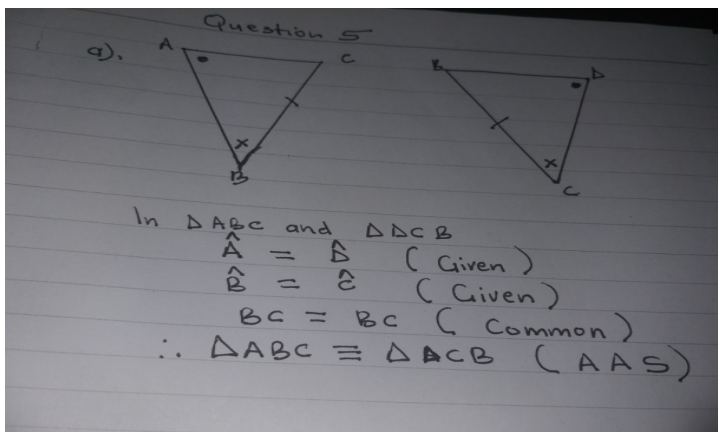 Question 5
a). A C B B D C
In Δ ABC and Δ DCB
Â = D̂ ( Given )
B̂ = Ĉ ( Given )
BC = BC ( Common )
∴ ΔABC ≡ ΔACB ( AAS )